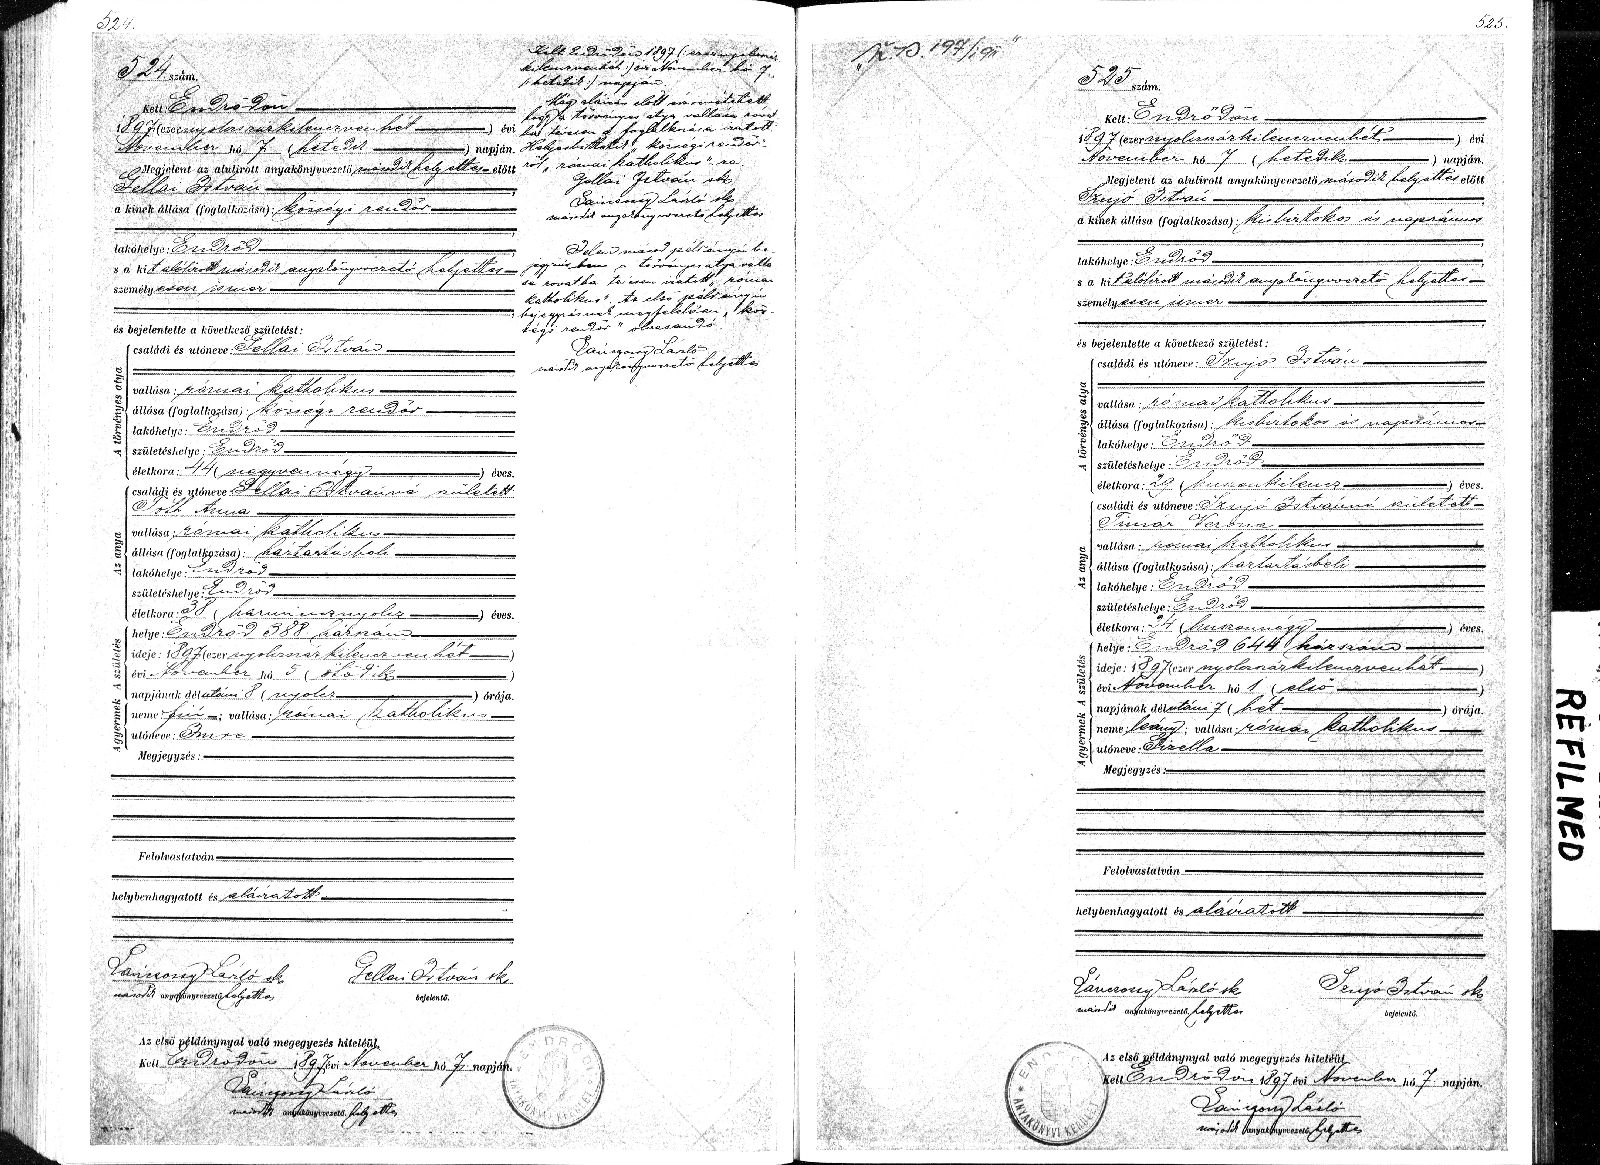 524.
524 szám.
Kelt: Endrődön
1897 (ezernyolczszázkilenczvenhét) évi
November hó 7 (hetedik) napján.
Megjelent az alulirott anyakönyvvezető második helyettes előtt
Gellai István
a kinek állása (foglalkozása): községi rendőr
lakóhelye: Endrőd
s a kit alólírott második anyakönyvvezető helyettes
személyesen ismer
és bejelentette a következő születést:
A törvényes atya
családi és utóneve: Gellai István
vallása: római katholikus
állása (foglalkozása): községi rendőr
lakóhelye: Endrőd
születéshelye: Endrőd
életkora: 44 (negyvennégy) éves.
Az anya
családi és utóneve: Gellai Istvánné született
Tóth Anna
vallása: római katholikus
állása (foglalkozása): háztartásbeli
lakóhelye: Endrőd
születéshelye: Endrőd
életkora: 38 (harmincznyolcz) éves.
A születés
helye: Endrőd 388 házszám
ideje: 1897 (ezernyolczszázkilenczvenhét)
évi November hó 5 (ötödik)
napjának délutáni 8 (nyolcz) órája.
A gyermek
neme fiú; vallása: római katholikus
utóneve: Imre
Megjegyzés:
Felolvastatván
helybenhagyatott és aláiratott
Lánczony László sk
második anyakönyvvezető helyettes
Gellai István sk
bejelentő.
Az első példánynyal való megegyezés hiteléül,
Kelt Endrődön 1897 évi November hó 7 napján.
Lánczony László
második anyakönyvvezető helyettes
Kelt Endrődön 1897 (ezernyolczszáz
kilenczvenhét) évi November hó 7
(hetedik) napján.
Még aláírás előtt
hogy a törvényes atya vallása
foglalkozása
Helyesbittetett "községi rendőr-
ről, római katholikus"-ra.
Gellai István sk
Lánczony László sk
második anyakönyvvezető helyettes
Jelen másod példányú be-
a törvényes atya vallá
sa rovatba római
katholikus". Az első példányú
bejegyzésnek megfelelően "köz-
ségi rendőr" olvasandó
Lánczony László
második anyakönyvvezető helyettes
525.
525 szám.
Kelt: Endrődön
1897 (ezernyolczszázkilenczvenhét) évi
November hó 7 (hetedik) napján.
Megjelent az alulirott anyakönyvvezető második helyettes előtt
Szujó István
a kinek állása (foglalkozása): kisbirtokos és napszámos
lakóhelye: Endrőd
s a kit alólírott második anyakönyvvezető helyettes
személyesen ismer
és bejelentette a következő születést:
A törvényes atya
családi és utóneve: Szujó István
vallása: római katholikus
állása (foglalkozása): kisbirtokos és napszámos
lakóhelye: Endrőd
születéshelye: Endrőd
életkora: 29 (huszonkilencz) éves.
Az anya
családi és utóneve: Szujó Istvánné született
Timár Verona
vallása: római katholikus
állása (foglalkozása): háztartásbeli
lakóhelye: Endrőd
születéshelye: Endrőd
életkora: 24 (huszonnégy) éves.
A születés
helye: Endrőd 644 házszám
ideje: 1897 (ezernyolczszázkilenczvenhét)
évi November hó 1 (első)
napjának délutáni 7 (hét) órája.
A gyermek
neme leány; vallása: római katholikus
utóneve: Gizella
Megjegyzés:
Felolvastatván
helybenhagyatott és aláiratott
Lánczony László sk
második anyakönyvvezető helyettes
Szujó István sk
bejelentő.
Az első példánynyal való megegyezés hiteléül,
Kelt Endrődön 1897 évi November hó 7 napján.
Lánczony László
második anyakönyvvezető helyettes
REFILMED